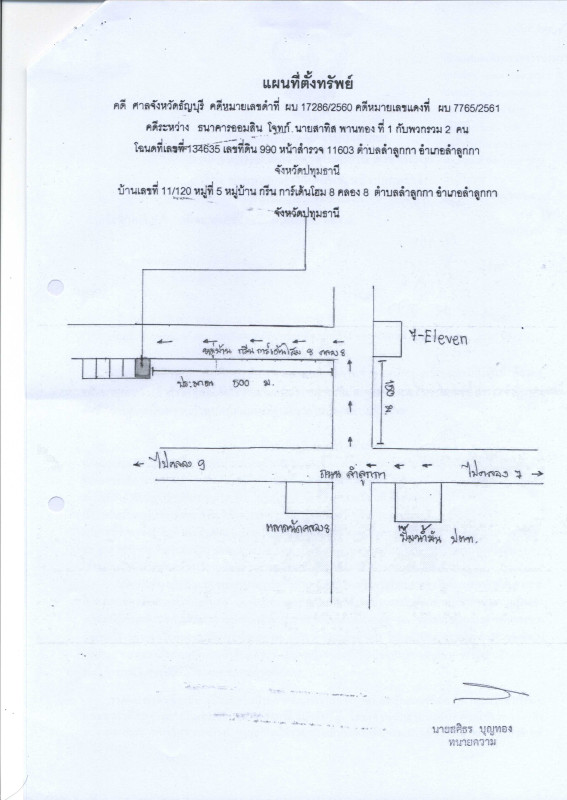 แผนที่ตั้งทรัพย์
คดี ศาลจังหวัดธัญบุรี คดีหมายเลขดำที่ ผบ 17286/2560 คดีหมายเลขแดงที่ ผบ 7765/2561
คดีระหว่าง ธนาคารออมสิน โจทก์ นายสาทิส พานทอง ที่ 1 กับพวกรวม 2 คน
โฉนดที่เลขที่ 134635 เลขที่ดิน 990 หน้าสำรวจ 11603 ตำบลลำลูกกา อำเภอลำลูกกา
จังหวัดปทุมธานี
บ้านเลขที่ 11/120 หมู่ที่ 5 หมู่บ้าน กรีน การ์เด้นโฮม 8 คลอง 8 ตำบลลำลูกกา อำเภอลำลูกกา
จังหวัดปทุมธานี
7-Eleven
หมู่บ้าน กรีน การ์เด้นโฮม 8 คลอง 8
ประมาณ 500 ม.
150 ม.
ไปคลอง 9
ถนน ลำลูกกา
ไปคลอง 7
ตลาดนัดคลอง 8
ปั๊มน้ำมัน ปตท.
นายธศิธร บุญทอง
ทนายความ